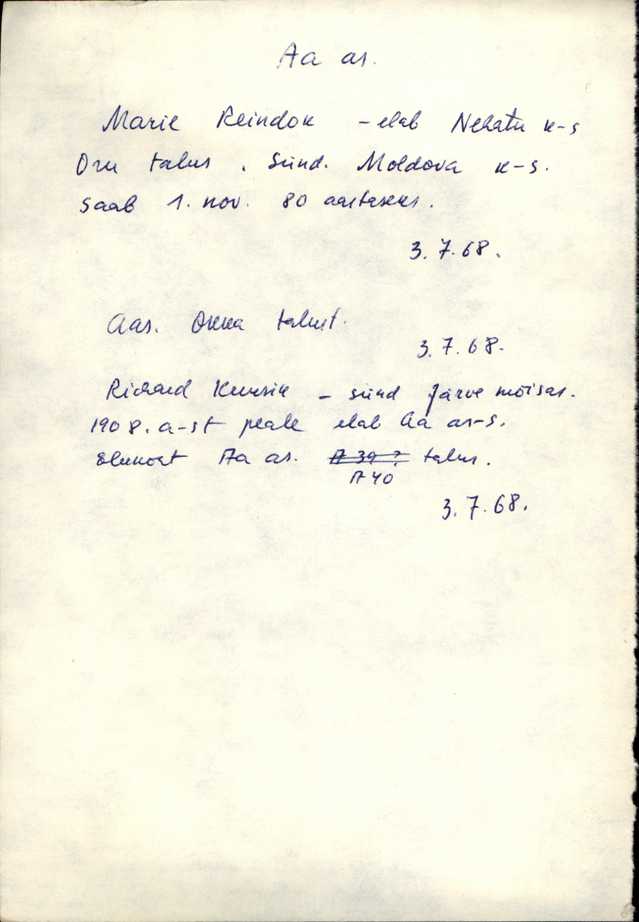 Aa as.
Marie Reindok - elab Nehatu k-s
Oru talus. Sünd. Moldova k-s.
saab 1. nov. 80 aastaseks.
3.7.68.
Aas. Orka talust.
3.7.68.
Richard - sünd Järve mõisas.
1908. a-st peale elab Aa as-s.
Elukoht Aa as. A 39 ? talus.
A 40
3.7.68.